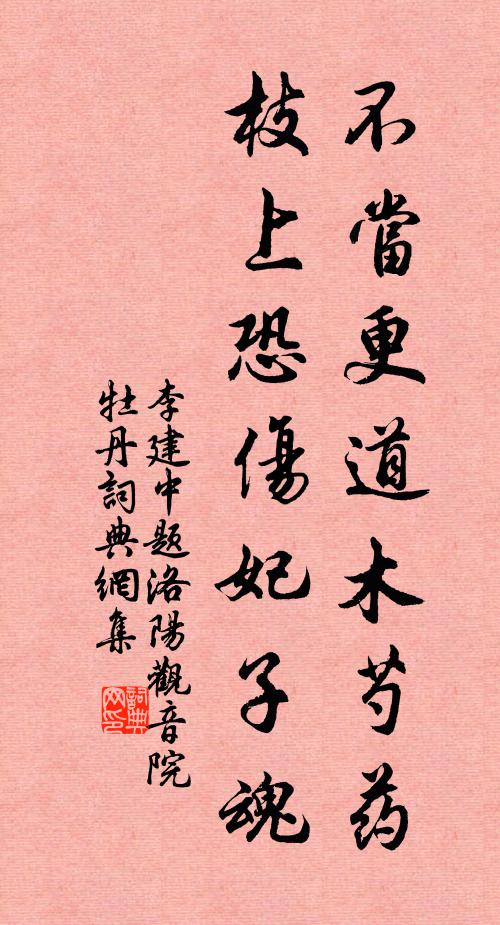 不當更道木芍药
枝上恐傷妃子魂
李建中題洛陽觀音院
牡丹詞典網集
詞典网印